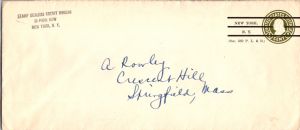 STAMP DEALERS CREDIT BUREAU
38 PARK ROW
NEW YORK, N. Y.
NEW YORK,
N. Y.
(Sec. 562 P. L. & R.)
A Rowley
Crescent Hill,
Springfield, Mass